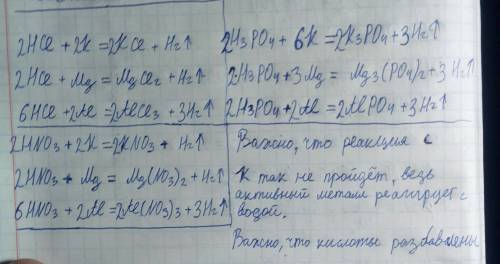 2HCl + 2K = 2KCl + H₂↑
2HCl + Mg = MgCl₂ + H₂↑
6HCl + 2Al = 2AlCl₃ + 3H₂↑
2HNO₃ + 2K = 2KNO₃ + H₂↑
2HNO₃ + Mg = Mg(NO₃)₂ + H₂↑
6HNO₃ + 2Al = 2Al(NO₃)₃ + 3H₂↑
2H₃PO₄ + 6K = 2K₃PO₄ + 3H₂↑
2H₃PO₄ + 3Mg = Mg₃(PO₄)₂ + 3H₂↑
2H₃PO₄ + 2Al = 2AlPO₄ + 3H₂↑
Важно, что реакция с
K так не пройдёт, ведь
активный металл реагирует с
водой.
Важно, что кислоты разбавлены